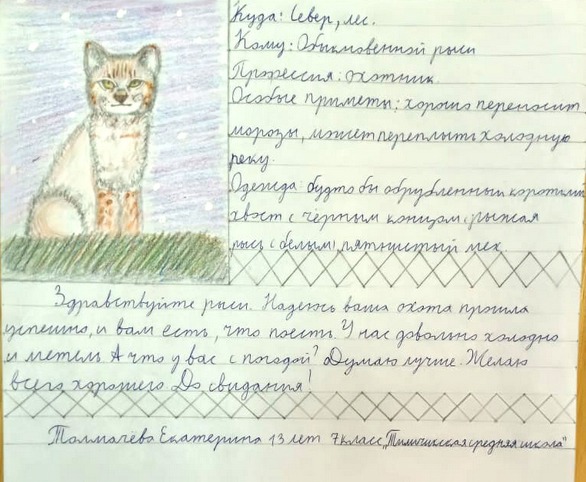 Куда: Север, лес.
Кому: Обыкновенной рыси
Профессия: охотник.
Особые приметы: хорошо переносит
морозы, может переплыть холодную
реку.
Одежда: будто бы обрубленный короткий
хвост с чёрным концом, рыжая
рысь (с белым) пятнистый мех.
Здравствуйте рыси. Надеюсь ваша охота прошла
успешно, и вам есть, что поесть. У нас довольно холодно
и метель. А что у вас с погодой? Думаю лучше. Желаю
всего хорошего. До свидания!
Толмачёва Екатерина 13 лет 7 класс "средняя школа"